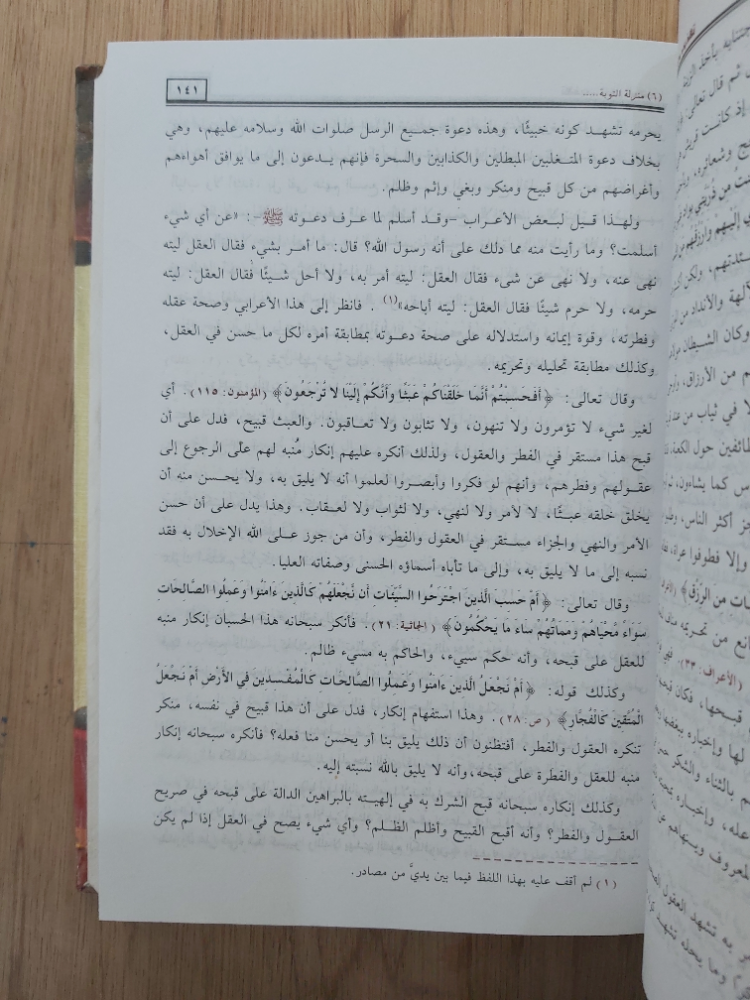 (٦) منزلة التوبة.....
١٤١
يحرمه تشهد كونه خبيثًا، وهذه دعوة جميع الرسل صلوات الله وسلامه عليهم، وهي
بخلاف دعوة المتغلبين المبطلين والكذابين والسحرة فإنهم يدعون إلى ما يوافق أهواءهم
وأغراضهم من كل قبيح ومنكر وبغي وإثم وظلم.
ولهذا قيل لبعض الأعراب -وقد أسلم لما عرف دعوته ﷺ-: «عن أي شيء
أسلمت؟ وما رأيت منه مما دلك على أنه رسول الله؟ قال: ما أمر بشيء فقال العقل ليته
نهى عنه، ولا نهى عن شيء فقال العقل: ليته أمر به، ولا أحل شيئًا فقال العقل: ليته
حرمه، ولا حرم شيئًا فقال العقل: ليته أباحه»(١) . فانظر إلى هذا الأعرابي وصحة عقله
وفطرته، وقوة إيمانه واستدلاله على صحة دعوته بمطابقة أمره لكل ما حسن في العقل،
وكذلك مطابقة تحليله وتحريمه.
وقال تعالى: ﴿أَفَحَسِبْتُمْ أَنَّمَا خَلَقْنَاكُمْ عَبَثًا وَأَنَّكُمْ إِلَيْنَا لا تُرْجَعُونَ﴾ (المؤمنون: ١١٥). أي
لغير شيء لا تؤمرون ولا تنهون، ولا تثابون ولا تعاقبون. والعبث قبيح، فدل على أن
قبح هذا مستقر في الفطر والعقول، ولذلك أنكره عليهم إنكار مُنبه لهم على الرجوع إلى
عقولهم وفطرهم، وأنهم لو فكروا وأبصروا لعلموا أنه لا يليق به، ولا يحسن منه أن
يخلق خلقه عبثًا، لا لأمر ولا لنهي، ولا لثواب ولا لعقاب. وهذا يدل على أن حسن
الأمر والنهي والجزاء مستقر في العقول والفطر، وأن من جوز على الله الإخلال به فقد
نسبه إلى ما لا يليق به، وإلى ما تأباه أسماؤه الحسنى وصفاته العليا.
وقال تعالى: ﴿أَمْ حَسِبَ الَّذِينَ اجْتَرَحُوا السَّيِّئَاتِ أَن نَّجْعَلَهُمْ كَالَّذِينَ ءَامَنُوا وَعَمِلُوا الصَّالِحَاتِ
سَوَاءً مَّحْيَاهُمْ وَمَمَاتُهُمْ سَاءَ مَا يَحْكُمُونَ﴾ (الجاثية: ٢١). فأنكر سبحانه هذا الحسبان إنكار منبه
للعقل على قبحه، وأنه حكم سييء، والحاكم به مسيء ظالم.
وكذلك قوله: ﴿أَمْ نَجْعَلُ الَّذِينَ ءَامَنُوا وَعَمِلُوا الصَّالِحَاتِ كَالْمُفْسِدِينَ فِي الأَرْضِ أَمْ نَجْعَلُ
الْمُتَّقِينَ كَالْفُجَّارِ﴾ (ص: ٢٨). وهذا استفهام إنكار، فدل على أن هذا قبيح في نفسه، منكر
تنكره العقول والفطر، أفتظنون أن ذلك يليق بنا أو يحسن منا فعله؟ فأنكره سبحانه إنكار
منبه للعقل والفطرة على قبحه،وأنه لا يليق بالله نسبته إليه.
وكذلك إنكاره سبحانه قبح الشرك به في إلهيته بالبراهين الدالة على قبحه في صريح
العقول والفطر؟ وأنه أقبح القبيح وأظلم الظلم؟ وأي شيء يصح في العقل إذا لم يكن
(١) لم أقف عليه بهذا اللفظ فيما بين يديَّ من مصادر.